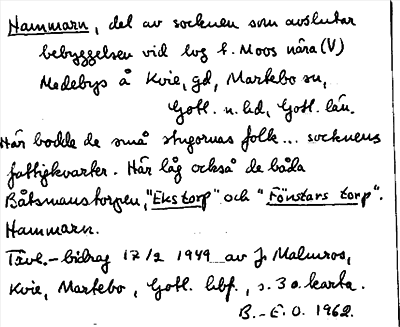 Hammarn, del av socknen som avslutar
bebyggelsen vid lvg f. Moos nära (V)
Medebys å Kvie, gd, Martebo sn,
Gotl. n. hd, Gotl. län.
Här bodde de små stugornas folk... socknens
fattigkvarter. Här låg också de båda
Båtsmanstorpen, "Ekstorp" och "Fönstars torp".
Hammarn.
Tävl.-bidrag 17/2 1949 av J. Malmros,
Kvie, Martebo, Gotl. hbf., s. 3 o. karta.
B.-E. O. 1962.